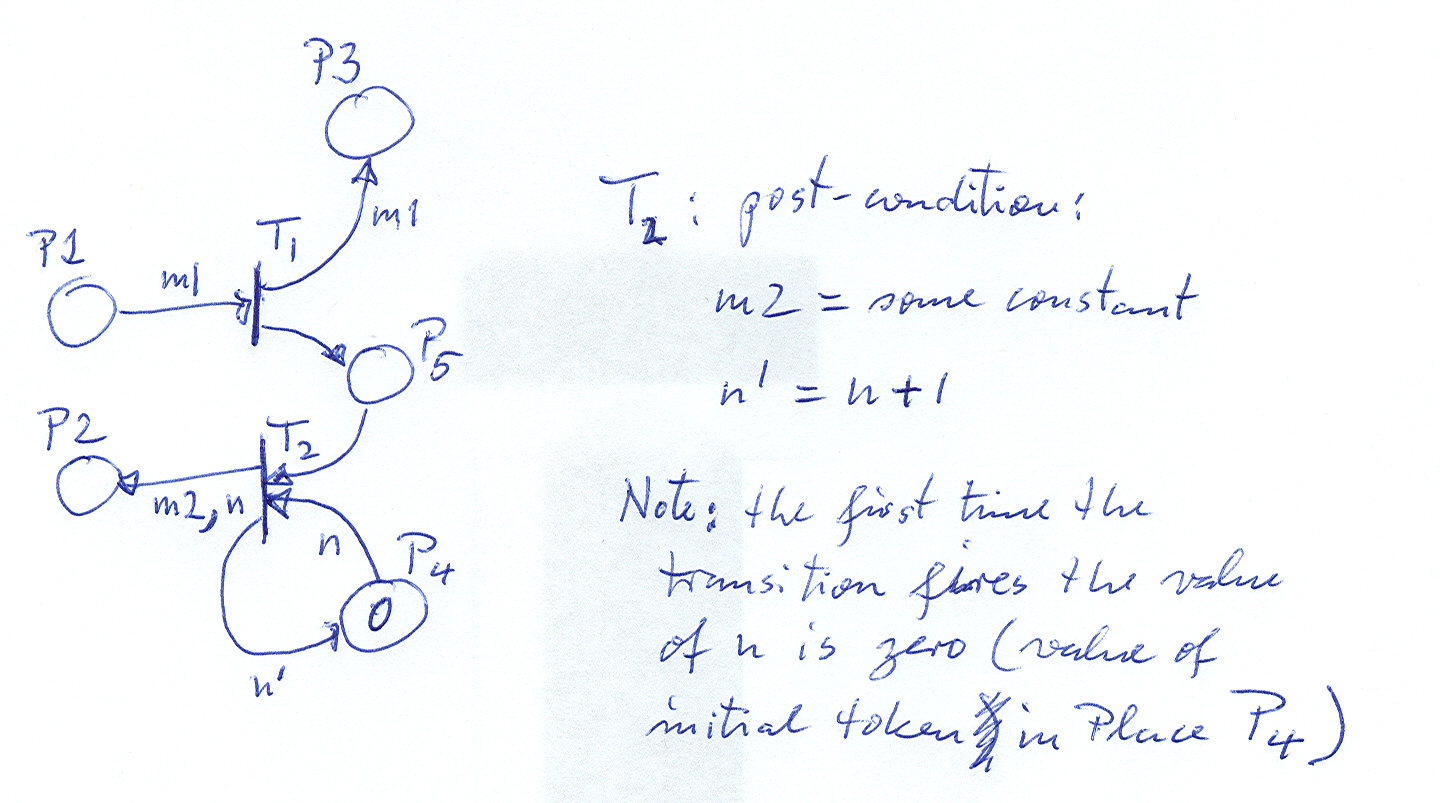 P3
m1
T1
P1
m1
P5
P2
T2
m2, n
n
P4
0
n'
T2: post-condition:
m2 = some constant
n' = n+1
Note: the first time the
transition fires the value
of n is zero (value of
initial token in Place P4)